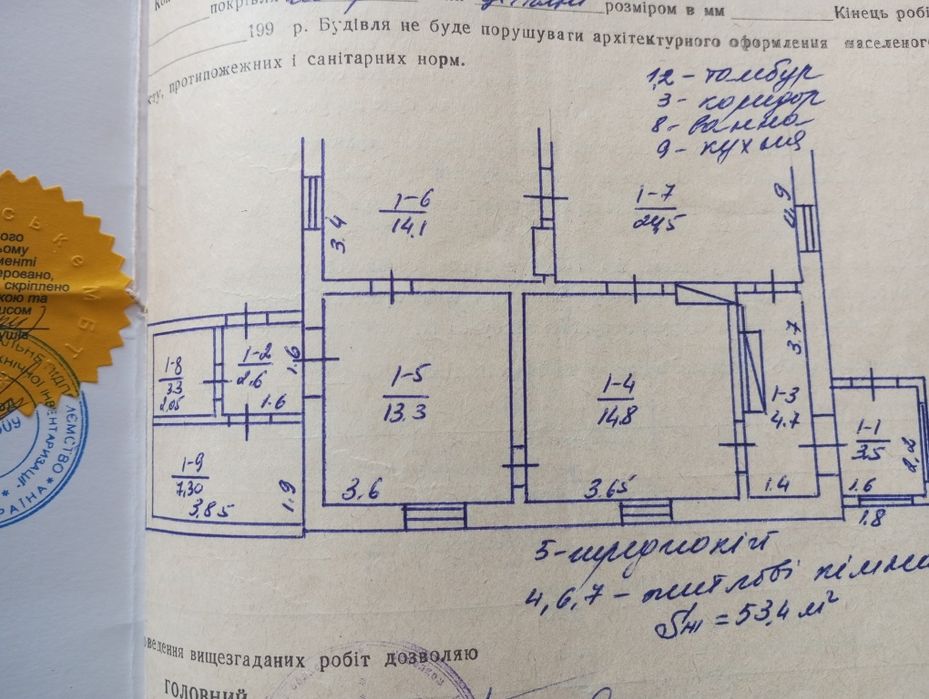 покрівля
розміром в мм
Кінець робі
199 р. Будівля не буде порушувати архітектурного оформлення населеного
протипожежних і санітарних норм.
1,2 - томбур
3 - коридор
8 - ванна
9 - кухня
1-6
14.1
3.4
1-7
24,5
4.9
1-8
3.3
2.05
1-2
2.6
1.6
1.6
1-5
13.3
3.6
1-4
14.8
3.65
3.7
1-3
4.7
1.4
1-1
3.5
2.2
1.6
1.8
1-9
7,30
3.85
1.9
5 - передпокій
4,6,7 - житлові кімна
= 53,4 м²
ведення вищезгаданих робіт дозволяю
ГОЛОВНИЙ
СЬКЕ
МБТ
ого
ьому
менті
серовано,
скріплено
кою та
исом
ІНВЕНТАРИЗАЦІЇ
ЄМСТВО
РАЇНА